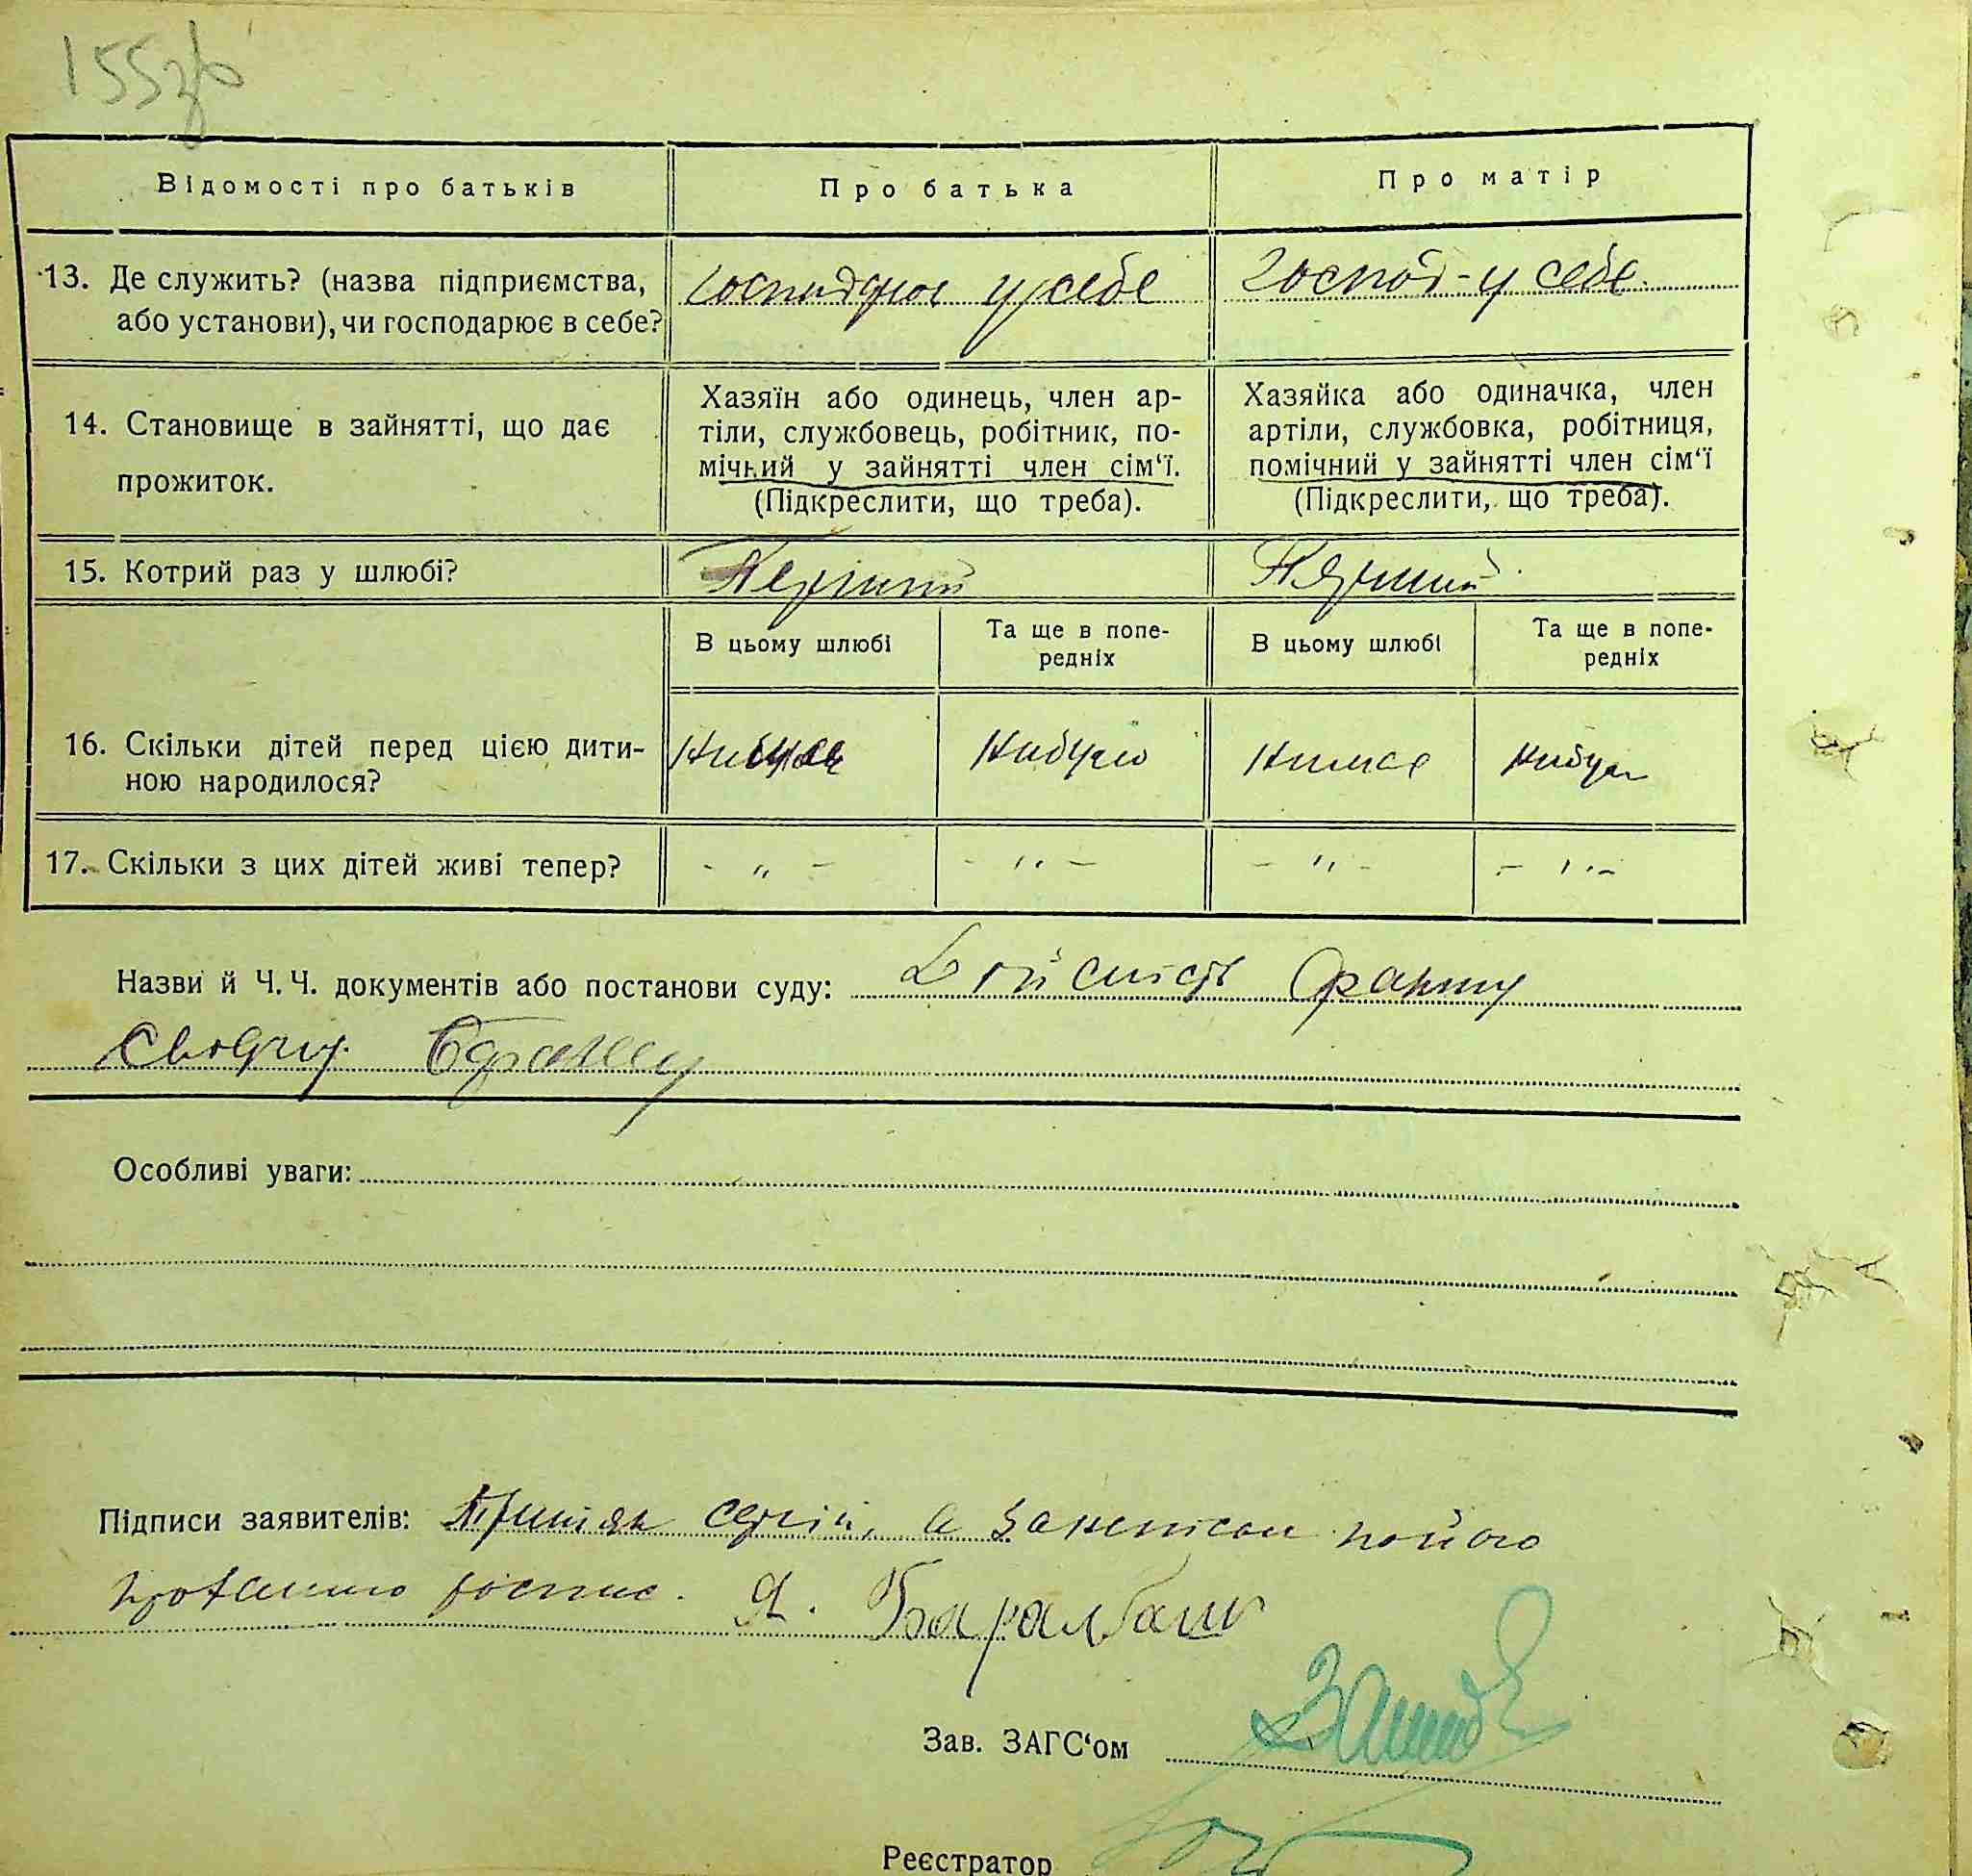 155зв
Відомості про батьків
Про батька
Про матір
13. Де служить? (назва підприємства,
або установи), чи господарює в себе?
господарює у себе
Господ - у себе
14. Становище в зайнятті, що дає
прожиток.
Хазяїн або одинець, член ар-
тіли, службовець, робітник, по-
мічний у зайнятті член сім‘ї.
(Підкреслити, що треба).
Хазяйка або одиначка, член
артіли, службовка, робітниця,
помічний у зайнятті член сім‘ї
(Підкреслити, що треба).
15. Котрий раз у шлюбі?
Перший
Перший
В цьому шлюбі
Та ще в попе-
редніх
В цьому шлюбі
Та ще в попе-
редніх
16. Скільки дітей перед цією дити-
ною народилося?
Нибуло
Нимає
Нибуло
17. Скільки з цих дітей живі тепер?
- „ -
- „ -
- „ -
- „ -
Назви й Ч. Ч. документів або постанови суду: Дійсність Факту
Свідчу
Особливі уваги:
Підписи заявителів: Сергій, а
росписс. Я.
Зав. ЗАГС‘ом
Реєстратор